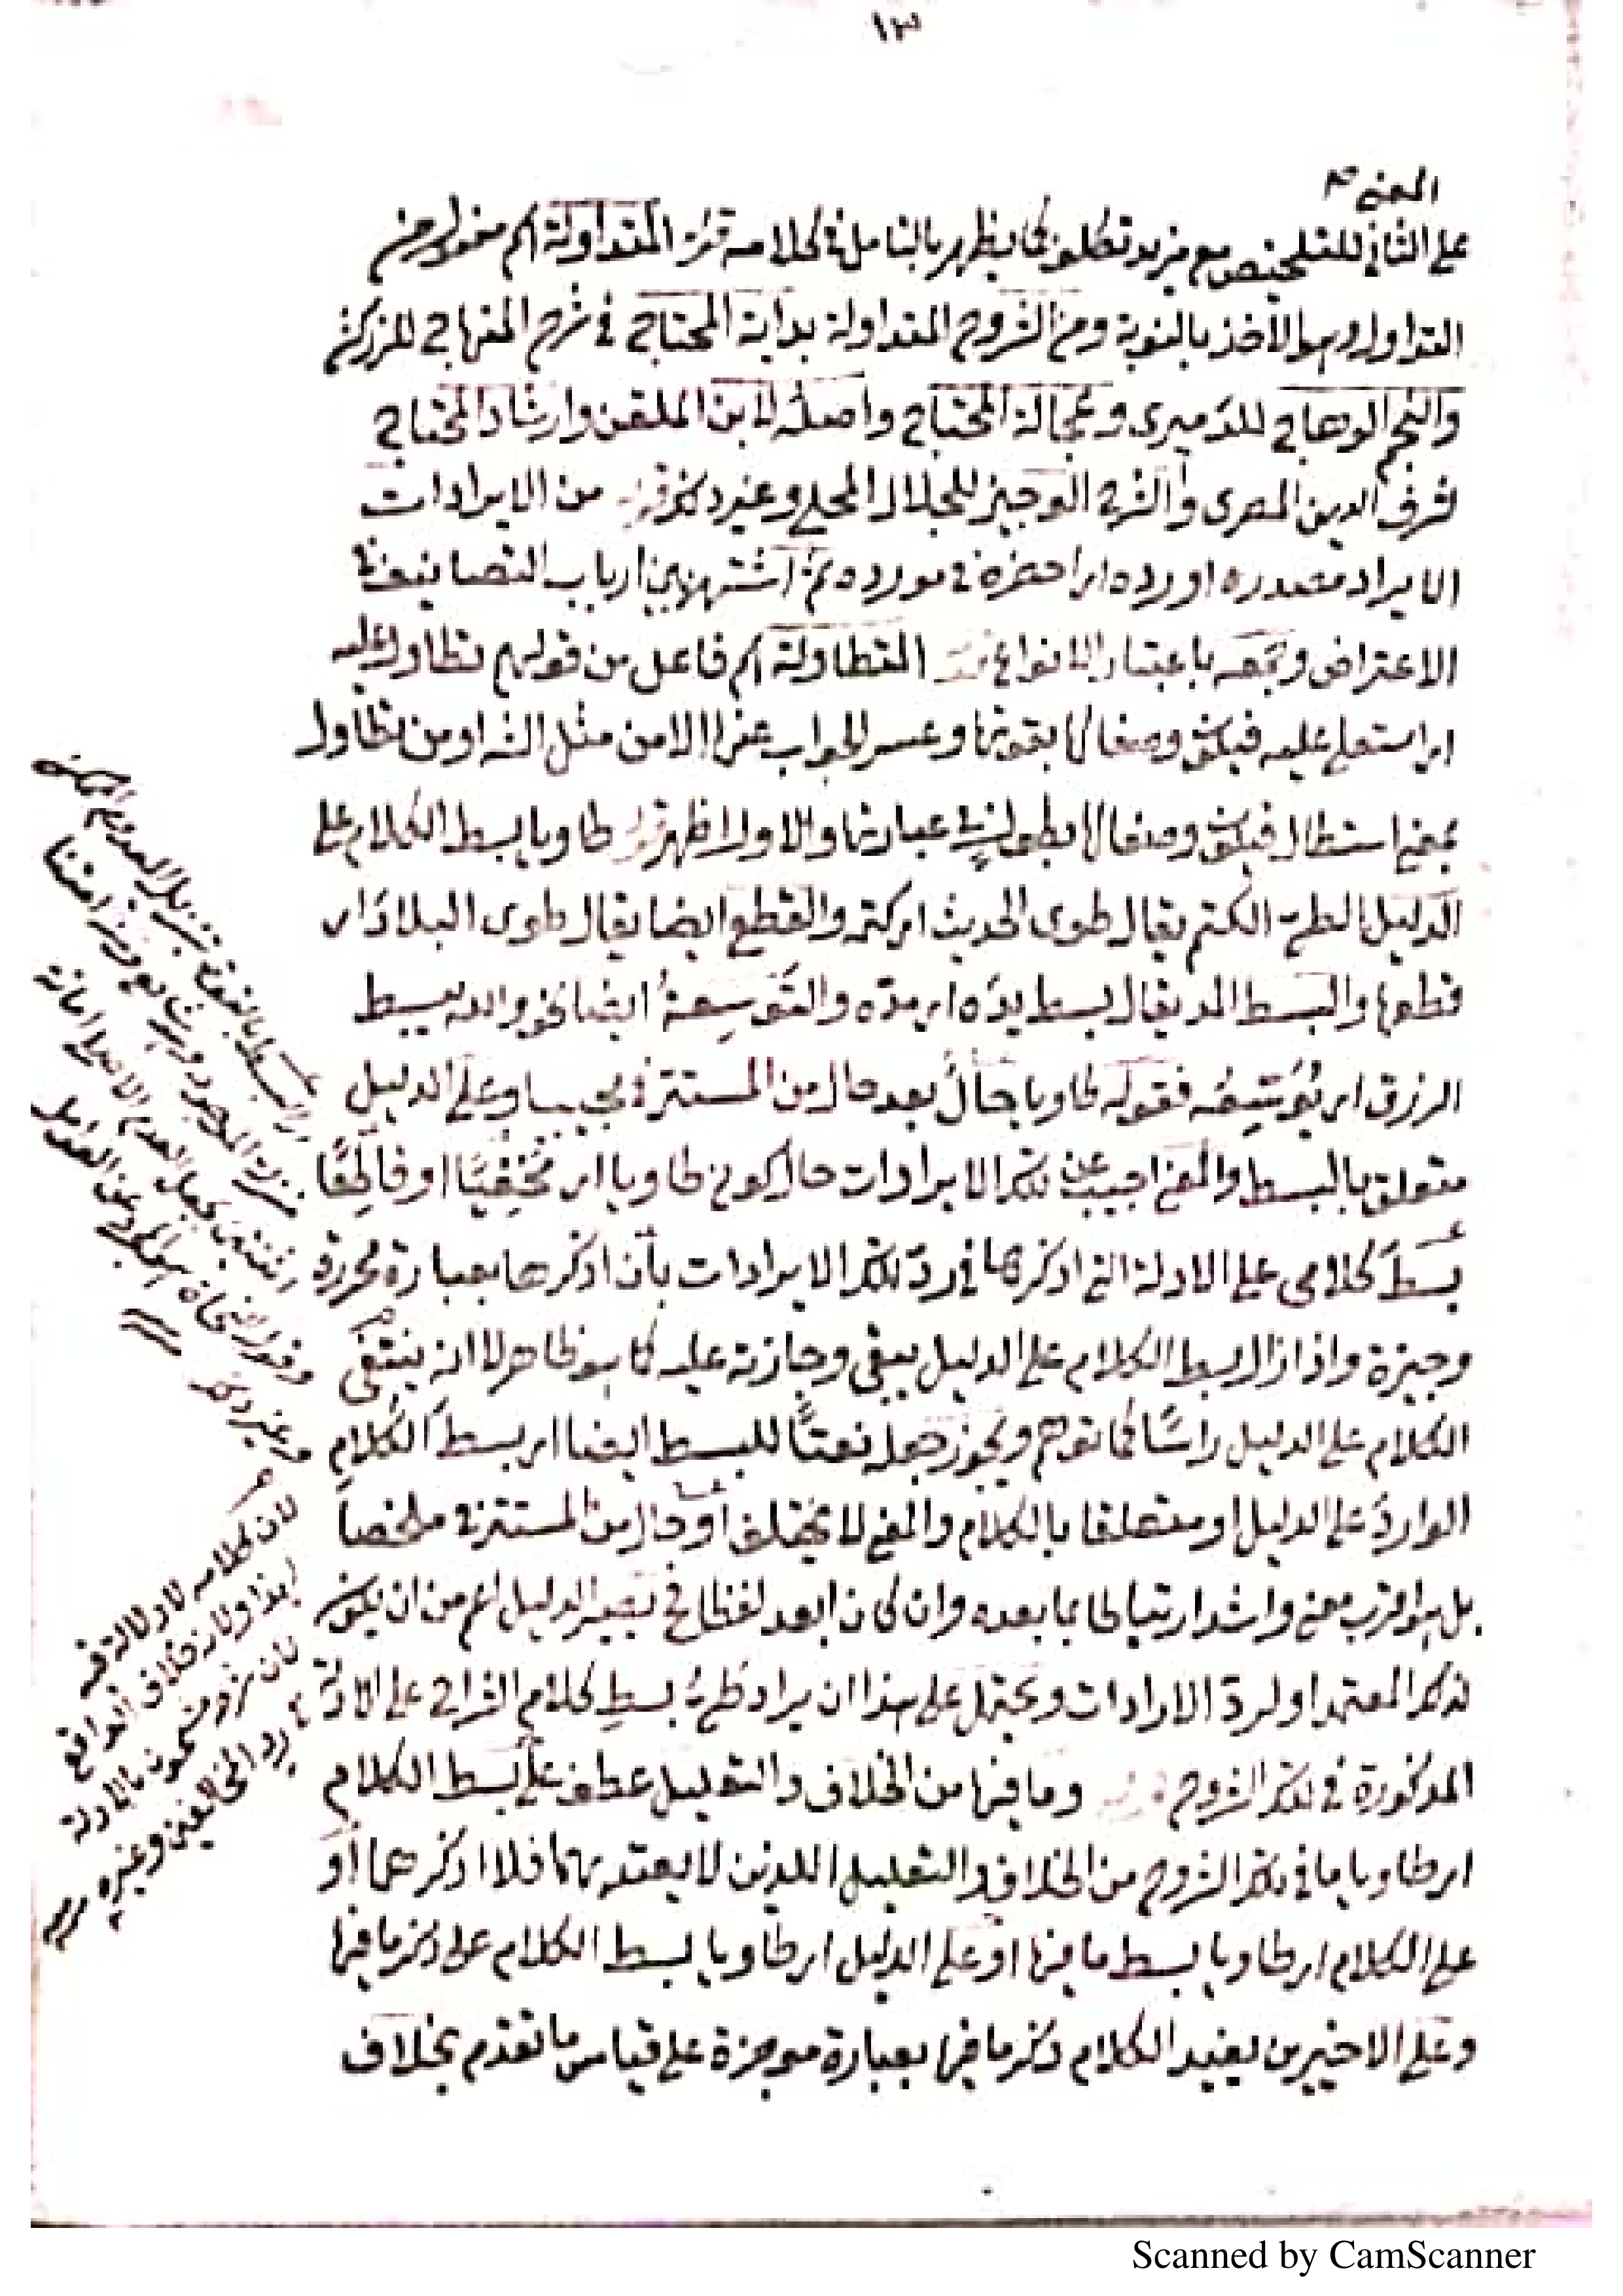 ١٣
المعنى ٣
على الثاني للتلخيص مع مزيد تكلف كما يظهر بالتأمل في كلامه قوله المتداولة اسم مفعول من
التداول وهو الأخذ بالنوبة ومن الشروح المتداولة بداية المحتاج في شرح المنهاج للزركشي
والنجم الوهاج للدميري وعجالة المحتاج وأصله لابن الملقن وارشاد المحتاج
لشرف الدين المصري والشرح الوجيز للجلال المحلي وغير ذلك قوله من الايرادات
الايراد مصدر اورده اي احضره في مورده ثم اشتهر بين ارباب التصانيف في
الاعتراض وجمعه باعتبار الانواع قوله المتطاولة اسم فاعل من قولهم تطاول عليه
اي استعلى عليه فيكون وصفا لها بقوتها وعسر الجواب عنها الا من مثل الش او من تطاول
بمعنى استطال فيكون وصفا لها بطول في عبارتها والاول اظهر قوله طاويا بسط الكلام على
الدليل الطي الكتم يقال طوى الحديث اي كتمه والقطع ايضا يقال طوى البلاد اي
قطعها والبسط المد يقال بسط يده اي مده والتوسعة ايضا نحو والله يبسط
الرزق اي يوسعه فقوله طاويا حال بعد حال من المستتر في مجيبا وعلى الدليل
متعلق بالبسط والمعنى اجيب عن تلك الايرادات حال كوني طاويا اي مخفيا او قاطعا
بسط كلامي على الادلة التي اذكرها في رد تلك الايرادات بأن اذكرها بعبارة محررة
وجيزة واذا زال بسط الكلام على الدليل يبقى وجازته عليه كما هو ظاهر لا انه ينتفي
الكلام على الدليل رأسا كما توهم ويجوز جعله نعتا للبسط ايضا اي بسط الكلام
الوارد على الدليل او متعلقا بالكلام والمعنى لا يختلف أو حال من المستتر في ملخصا
بل هو اقرب معنى واشد ارتباطا بما بعده وان كان ابعد لفظا في بصير الدليل اعم من ان يكون
لذكر المعتمد او لرد الايرادات ويحتمل على هذا ان يراد طي بسط كلام الشراح على الادلة
المذكورة في تلك الشروح قوله وما فيها من الخلاف والتعليل عطف على بسط الكلام
اي طاويا ما في تلك الشروح من الخلاف والتعليل اللذين لا يعتد بهما فلا اذكرهما أو
على الكلام اي طاويا بسط ما فيها او على الدليل اي طاويا بسط الكلام على ذكر ما فيها
وعلى الاخيرين يفيد الكلام ذكر ما فيها بعبارة موجزة على قياس ما تقدم بخلاف
منزلة الموجود
وغير ذلك
لان كلامه لا دلالة فيه
رد المخالفين وغيره
Scanned by CamScanner